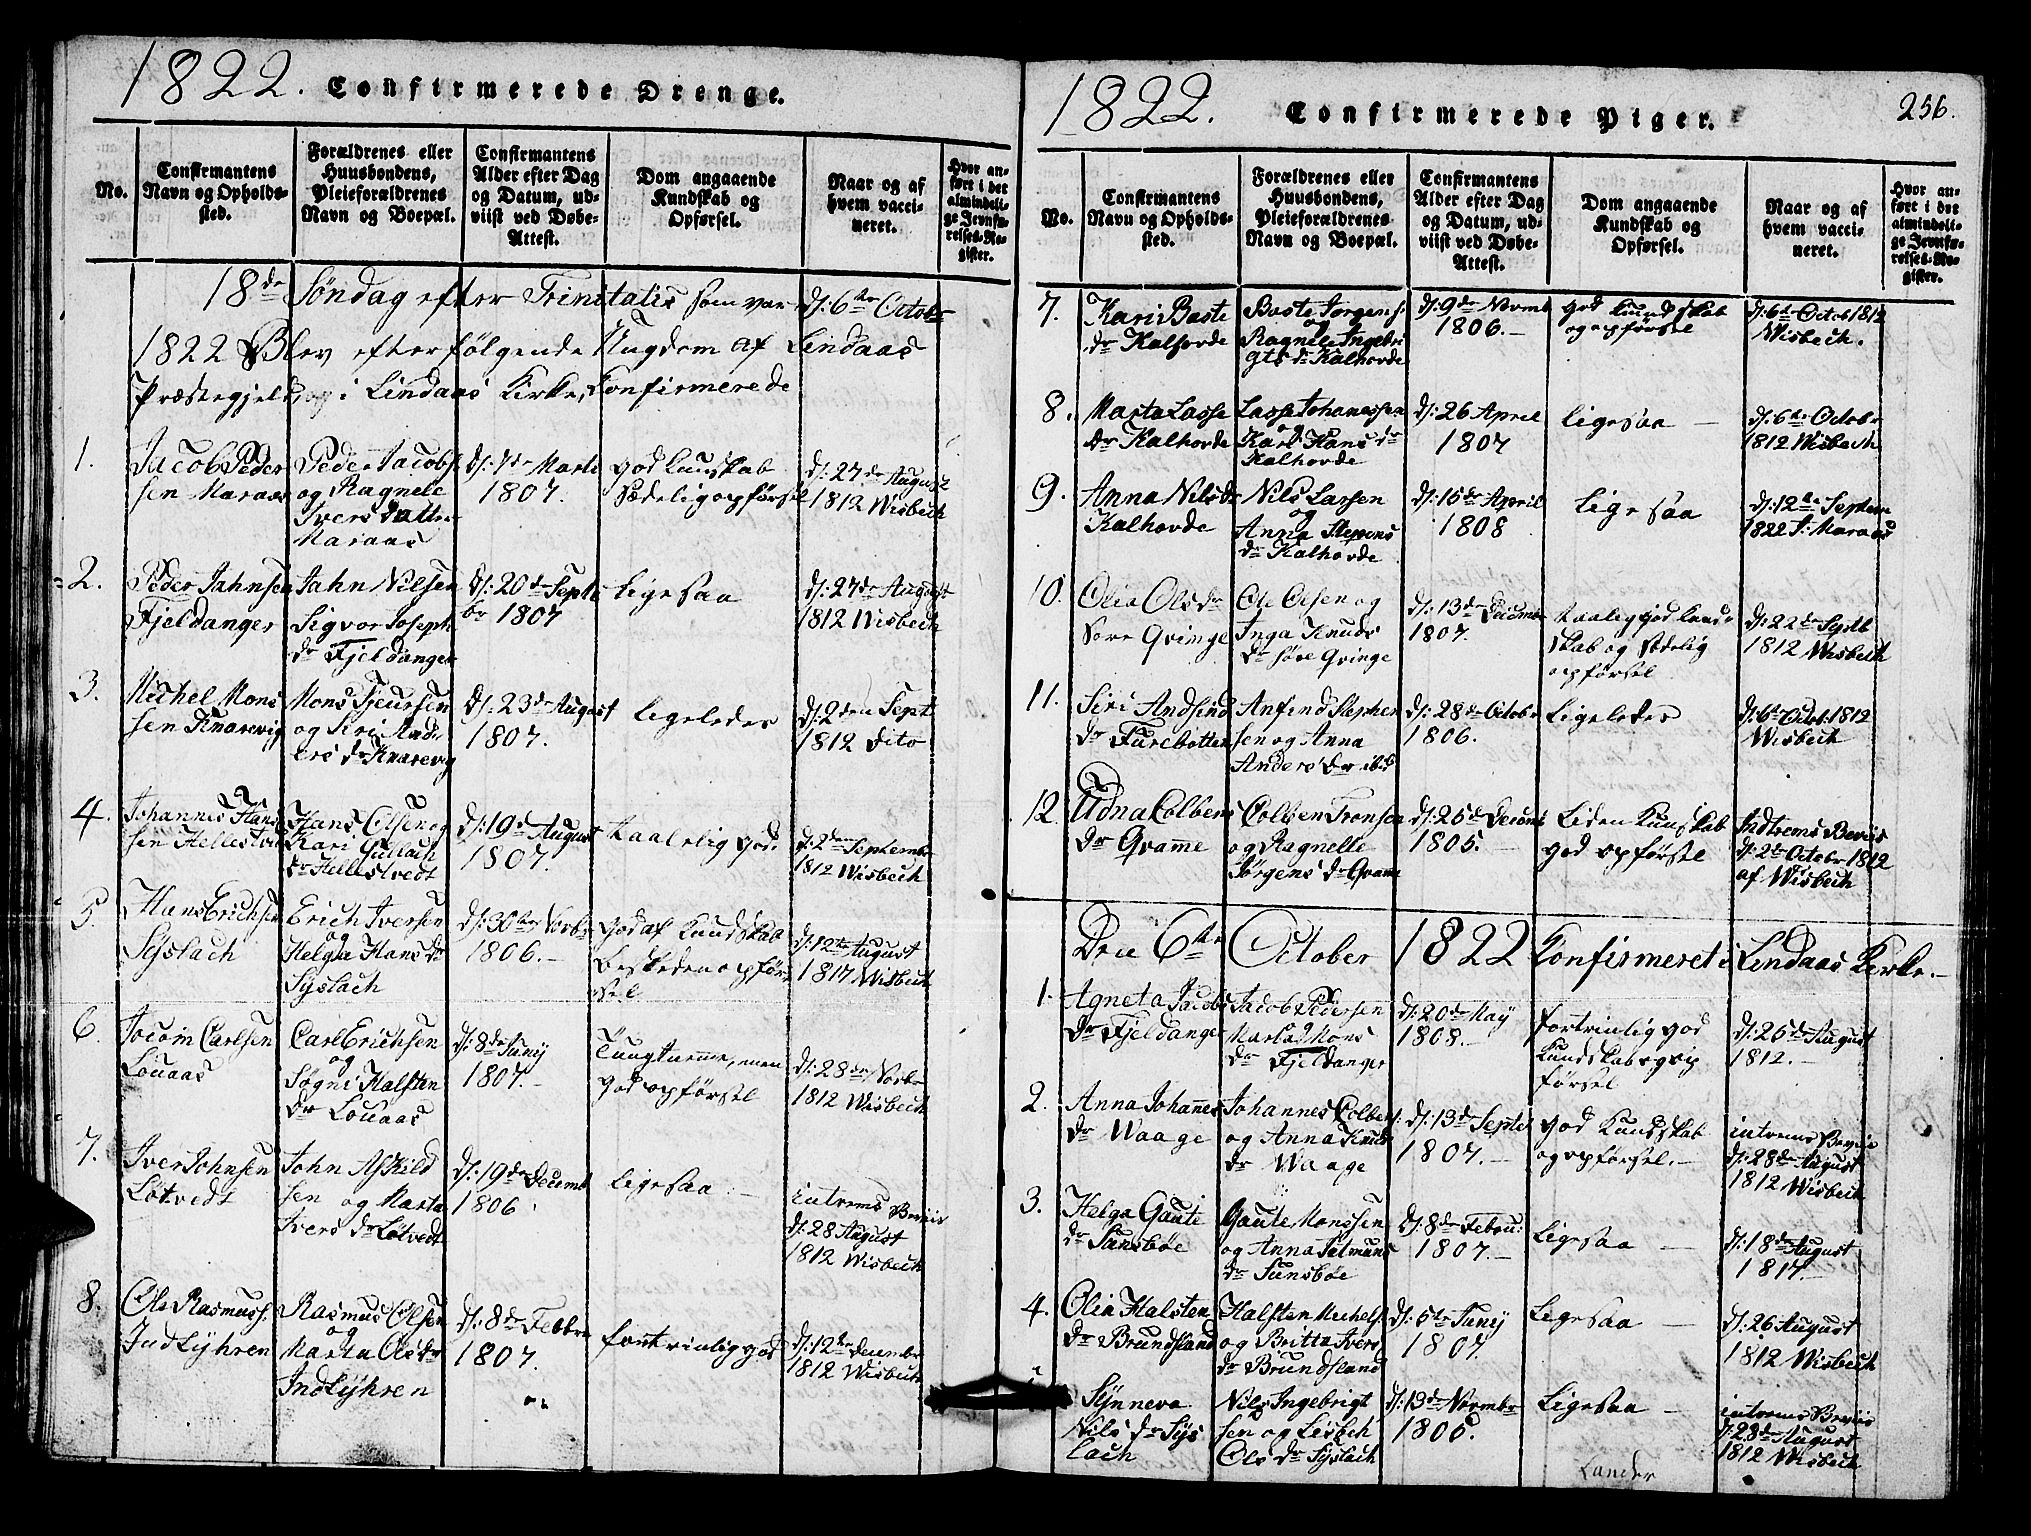 1822. Confirmerede Drenge.
No.
Confirmantens
Navn og Opholds-
sted.
Forældrenes eller
Huusbondens,
Pleieforældrenes
Navn og Boepæl.
Confirmantens
Alder efter Dag
og Datum, ud-
viist ved Døbe-
Attest.
Dom angaaende
Kundskab og
Opførsel.
Naar og af
hvem vacci-
neret.
Hvor an-
ført i det
almindeli-
ge Jevnfø-
relses-Re-
gister.
18de Søndag efter Trinitatis som var d: 6te Octobr
1822 Blev efterfølgende Ungdom af Lindaas
Præstegjeld, og i Lindaas Kirke, Confirmerede
1.
Jacob Peder
sen Maraas
Peder Jacobs.
og Ragnele
Ivers datter
Maraas
d: 7de Marti
1807.
god kunskab
Sædelig opførsel
d: 27de August
1812 Wisbech
2.
Peder Jahnsen
Fjeldanger
Jahn Nilsen
Sigvor Joseph
dr Fjeldanger
d: 20de Septe
br 1807
Ligesaa
d: 27de August
1812 Wisbech
3.
Michel Mons
sen Knarevig
Mons Sjeursen
og Siri And
ers dr Knarevig
d: 23de August
1807.
ligeledes
d: 2den Sept
1812 dito
4.
Johannes Hans
sen Hellestvedt
Hans Olsen og
Kari Gullach
dr Hellestvedt
d: 19de August
1807.
taalelig god.
d: 2de Septembr
1812 Wisbech
5
Hans Erichsen
Syslach
Erich Iversen
og
Helga Hans dr
Syslach
d: 30te Novbr
1806.
god af Kundskab
beskeden opfør=
sel
d: 12te August
1817 Wisbech
6.
Jocom Carlsen
Louaas
Carl Erichsen
og
Søgni Halsten
dr Louaas
d: 8de Juny
1807.
Tungnemme, men
god opførsel
d: 28de Novbr
1812 Wisbech
7.
Iver Johnsen
Løtvedt
John Askild
sen og Marta
Ivers dr Løtvedt
d: 19de Decemb
1806
ligesaa
intrems Beviis
d: 28 August
1812 Wisbech
8.
Ole Rasmuss.
Indlyhren
Rasmus Olsen
og
Marta Ols dr
Indlyhren
d: 8de Febbr
1807.
fortrinlig god
d: 12te Decembr
1812 Wisbech
1822. Confirmerede Piger. 256.
No.
Confirmantens
Navn og Opholds-
sted.
Forældrenes eller
Huusbondens,
Pleieforældrenes
Navn og Boepæl.
Confirmantens
Alder efter Dag
og Datum, ud-
viist ved Døbe-
Attest.
Dom angaaende
Kundskab og
Opførsel.
Naar og af
hvem vacci-
neret.
Hvor an-
ført i det
almindeli-
ge Jevnfø-
relses-Re-
gister.
7.
Kari Baste
dr Kalhovde
Baste Jorgens.
og
Ragnele Ingebri
gts dr Kalhovde
d: 9de Novmb
1806.
god kundskab
og opførsel
d: 6te Octob 1812
Wisbech.
8.
Marta Lasse
dr Kalhovde
Lasse Johanessen
og
Kari Hans dr
Kalhovde
d: 26 April
1807
ligesaa
d: 6te Octobr
1812 Wisbech
9.
Anna Nils dr
Kalhovde
Nils Larsen
og
Anna Stepens
dr Kalhovde
d: 15de April
1808
Ligesaa
d: 12te Septem
1822 J: Maraas
10.
Olia Ols dr
Søre Qvinge
Ole Olsen og
Inga Knuds
dr søre Qvinge
d: 13de Decmb
1807.
taalig god kund=
skab og sædelig
opførsel
d: 22de Septb
1812 Wisbech
11.
Siri Andfind
dr Furebotten
Anfind Stephen
sen og Anna
Anders dr ibd
d: 28de Octobr
1806.
Ligeledes
d: 6te Octob. 1812
Wisbech
12.
Udna Colbens
dr Qvamme
Colben Tronsen
og Ragnelle
Jørgens dr Qvame
d: 25de Decemb
1805.
Liden Kunskab
god opførsel
Indtrems Beviis
d: 2de Octobr 1812
af Wisbech
Den 6te October 1822 Konfirmeret i Lindaas Kirke.
1.
Agneta Jacobs
dr Fjeldanger
Jacob Pedersen
og
Marta Mons
dr Fjeldanger
d: 20de May
1808.
fortrinlig god
Kundskab og op
førsel
d: 25de August
1812.
2.
Anna Johanes
dr Waage
Johannes Colbens.
og Anna Knuds
dr Waage
d: 13de Septe
1807.
god Kundskab
og opførsel.
intrems Beviis
d: 28de August
1812 Wisbech
3.
Helga Gaute
dr Sunsbøe
Gaute Monssen
og Anna Salmuns
dr Sunsbøe
d: 8de Febru:
1807.
Ligesaa
d: 18de August
1817.
4.
Olia Halsten
dr Brundsland
Halsten Michels.
og Britta Ivers
dr Brundsland
d: 5te Juny
1807.
Ligesaa
d: 26 August
1812 Wisbech
Synneva
Nils dr Sys
lach
Nils Ingebrigt
sen og Lisbeh
Ols dr Syslach
d: 13de Novmbr
1806.
Ligesaa
intrems Beviis
d: 28de August
1812 Wisbech